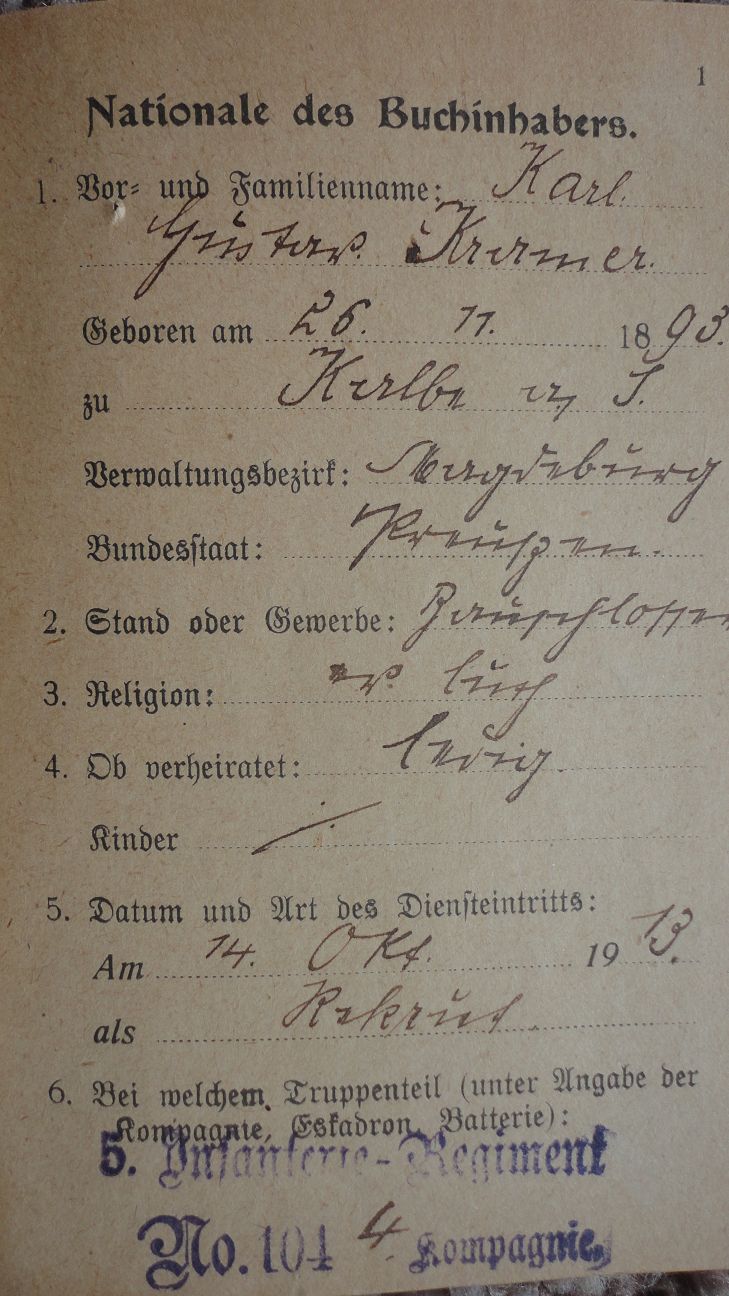 1
Nationale des Buchinhabers.
1. Vor- und Familienname: Karl
Gustav Kramer.
Geboren am 26. 11. 1893.
zu Kalbe a/ S.
Verwaltungsbezirk: Magdeburg
Bundesstaat: Preußen.
2. Stand oder Gewerbe: Bauschlosser
3. Religion: ev. luth
4. Ob verheiratet: ledig.
Kinder ./.
5. Datum und Art des Diensteintritts:
Am 14. Okt. 1913.
als Rekrut
6. Bei welchem Truppenteil (unter Angabe der
Kompagnie, Eskadron, Batterie):
5. Infanterie-Regiment
No. 104 4. Kompagnie.